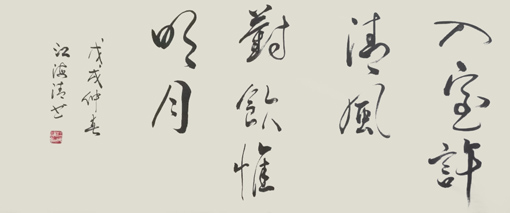 入室許
清風
對飲惟
明月
戊戌仲春
江海清